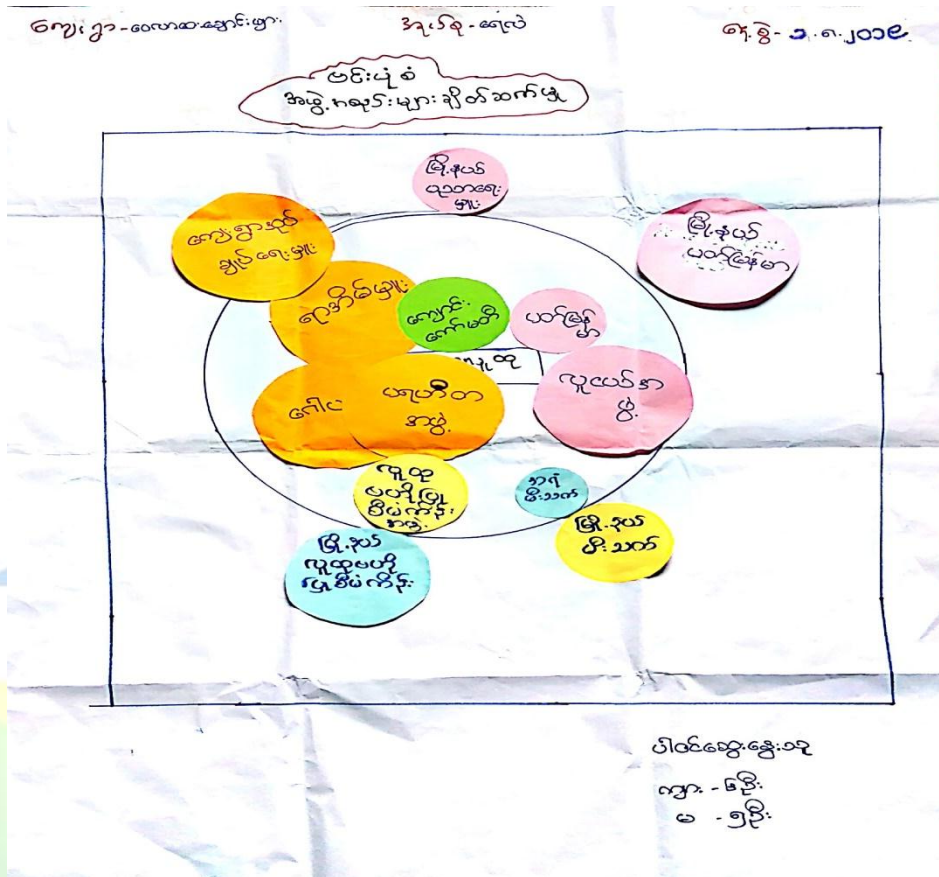 ကျေးရွာ-ဝေလာဆ.ချောင်းဖျား
အုပ်စု-ရေလဲ
နေ့စွဲ- ၁.၈.၂၀၁၉
ဗင်းပုံစံ
အဖွဲ့အစည်းများချိတ်ဆက်မှု
မြို့နယ်
ပညာရေး
မှူး
ကျေးရွာအုပ်
ချုပ်ရေးမှူး
မြို့နယ်
ပတ်မြန်မာ
ရာအိမ်မှူး
ကျောင်း
ကော်မတီ
ပတ်မြန်
မာ
ဂေါပ
ပရဟိတ
အဖွဲ့
လူငယ်အ
ဖွဲ့
လူထု
ဗဟိုပြု
စီမံကိန်း
အဖွဲ့
အရံ
မီးသတ်
မြို့နယ်
မီးသတ်
မြို့နယ်
လူထုဗဟို
ပြုစီမံကိန်း
ပါဝင်ဆွေးနွေးသူ
ကျား - ၆ဦး
မ - ၅ဦး